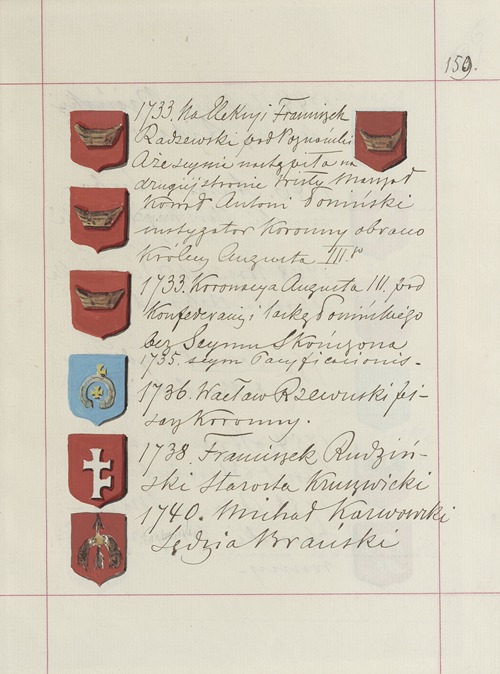 159.
1733. Na Elekcyi Franciszek
Radzewski pod Poznański
A że seymie nastąpiła na
drugiej stronie Wisły Marszał
Konrad Antoni Poniński
instygator Koronny obrano
Królem Augusta III.º
1733. Koronacya Augusta III. pod
Konfederacyi laską Ponińskiego
bez Seymu Skończona
1735. seym Pacyficacionis.
1736. Wacław Rzewuski pi-
sarz Koronny.
1738 Franciszek Rudziń-
ski Starosta Kruszwicki
1740. Michał Karwowski
Sędzia Brański